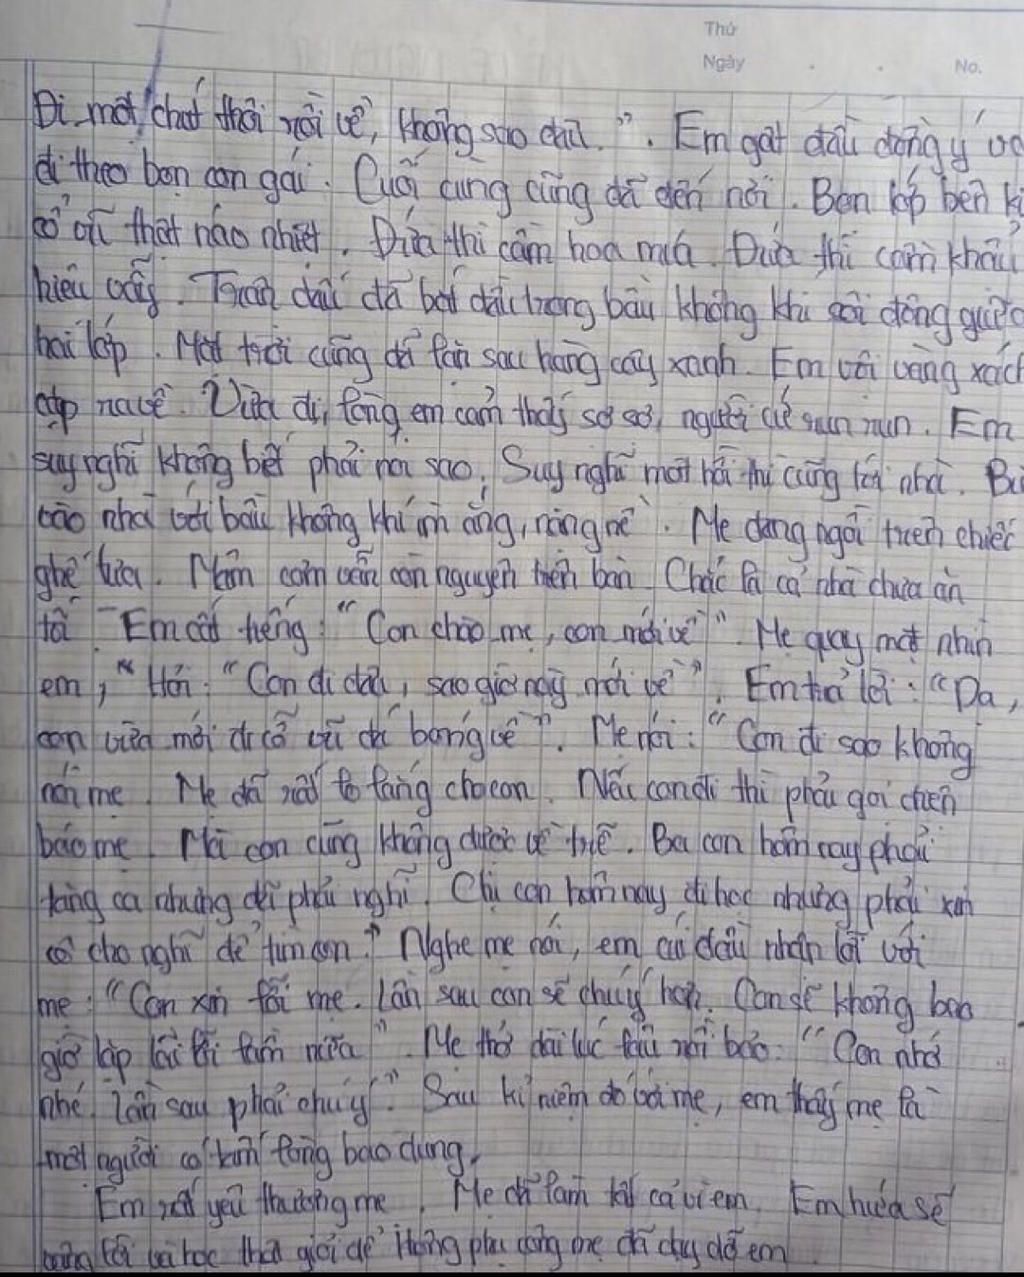 Thứ
Ngày No.
Đi một chút thôi rồi về, không sao đâu.". Em gật đầu đồng ý và
đi theo bọn con gái. Cuối cùng cũng đã đến nơi. Bọn lớp bên kì
cổ vũ thật náo nhiệt. Đứa thì cầm hoa múa. Đứa thì cầm khẩu
hiệu vẫy. Trận đấu đã bắt đầu trong bầu không khí sôi động giữa
hai lớp. Mặt trời cũng đã lặn sau hàng cây xanh. Em vội vàng xách
cặp ra về. Vừa đi, lòng em cảm thấy sợ sợ, người cứ run run. Em
suy nghĩ không biết phải nói sao. Suy nghĩ một hồi thì cũng tới nhà. Bư
vào nhà với bầu không khí im ắng, nặng nề. Mẹ đang ngồi trên chiếc
ghế tựa. Mâm cơm vẫn còn nguyên trên bàn. Chắc là cả nhà chưa ăn
tối. Em cất tiếng: "Con chào mẹ, con mới về". Mẹ quay mặt nhìn
em, "Hỏi: "Con đi đâu, sao giờ này mới về". Em trả lời: "Dạ,
con vừa mới đi cổ vũ đá bóng về". Mẹ nói: "Con đi sao không
nói mẹ. Mẹ đã rất lo lắng cho con. Nếu con đi thì phải gọi điện
báo mẹ. Mà con cũng không được về trễ. Ba con hôm nay phải
tăng ca nhưng để phải nghĩ. Chị con hôm nay đi học nhưng phải xin
cô cho nghĩ để tìm con." Nghe mẹ nói, em cúi đầu nhận lỗi với
mẹ: "Con xin lỗi mẹ. Lần sau con sẽ chú ý hơn. Con sẽ không bao
giờ lặp lại lỗi lầm nữa". Mẹ thở dài lúc lâu rồi bảo: "Con nhớ
nhé lần sau phải chú ý." Sau kỉ niệm đó với mẹ, em thấy mẹ là
một người có tấm lòng bao dung.
Em rất yêu thương mẹ. Mẹ đã làm tất cả vì em. Em hứa sẽ
lời và học thật giỏi để không phụ công mẹ đã dạy dỗ em